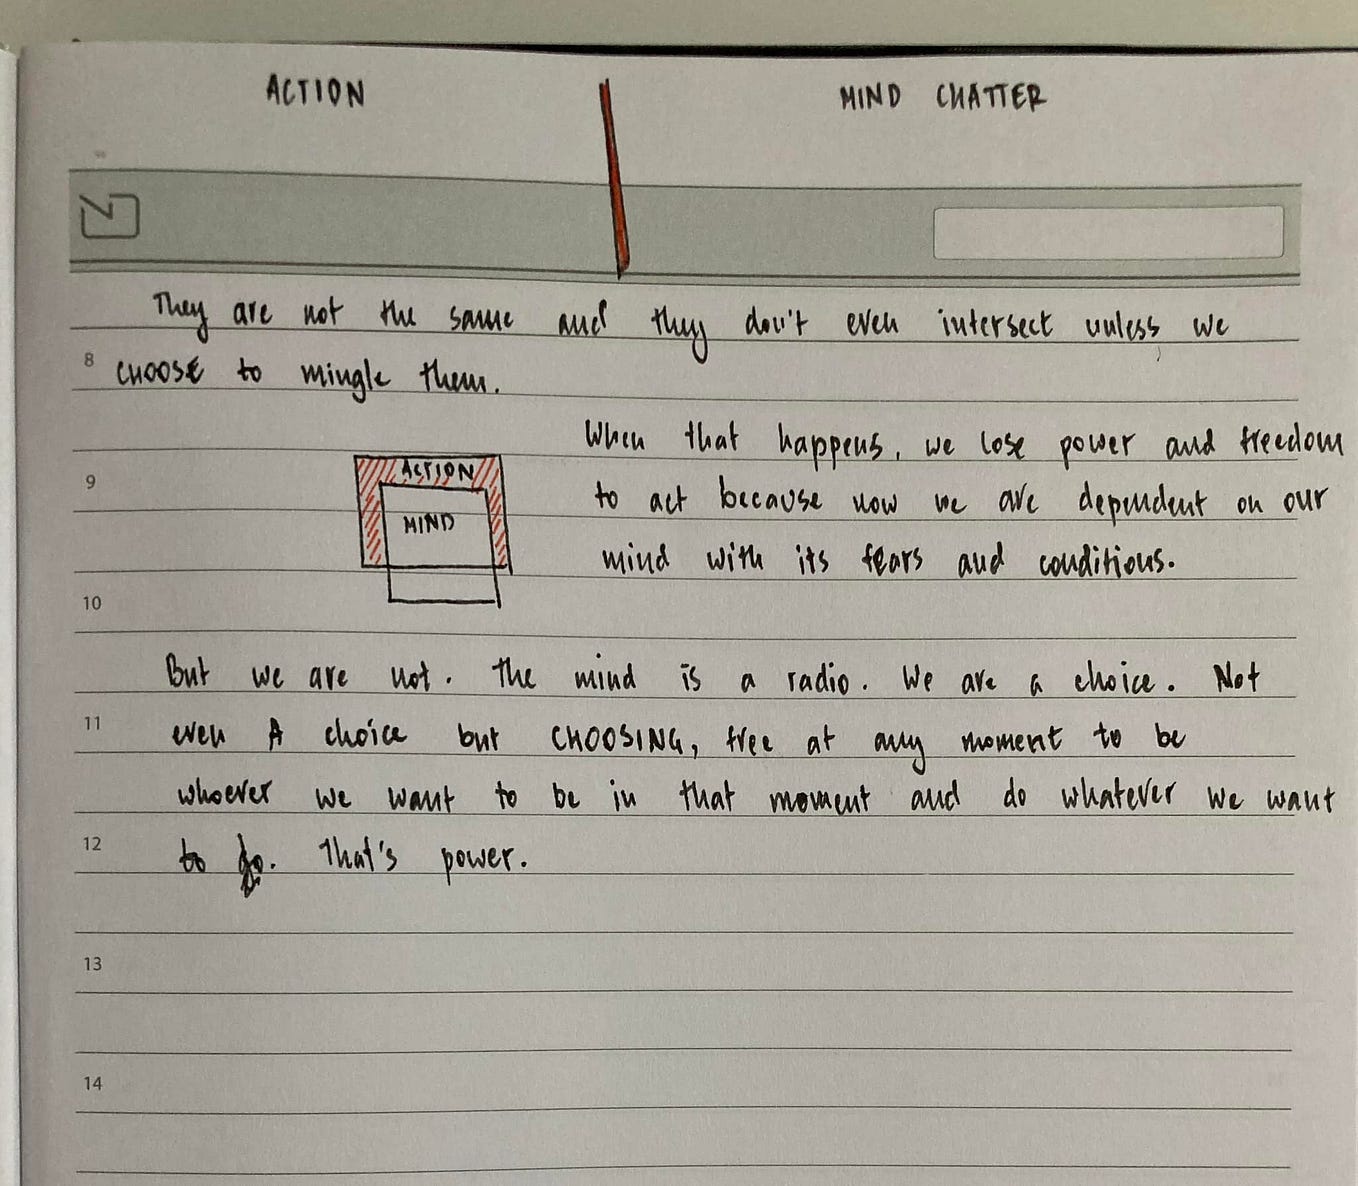 ACTION
MIND CHATTER
They are not the same and they don't even intersect unless we
8
CHOOSE to mingle them.
When that happens, we lose power and freedom
9
ACTION
to act because now we are dependent on our
MIND
mind with its fears and conditions.
10
But we are not. The mind is a radio. We are a choice. Not
11
even A choice but CHOOSING, free at any moment to be
whoever we want to be in that moment and do whatever we want
12
to do. That's power.
13
14